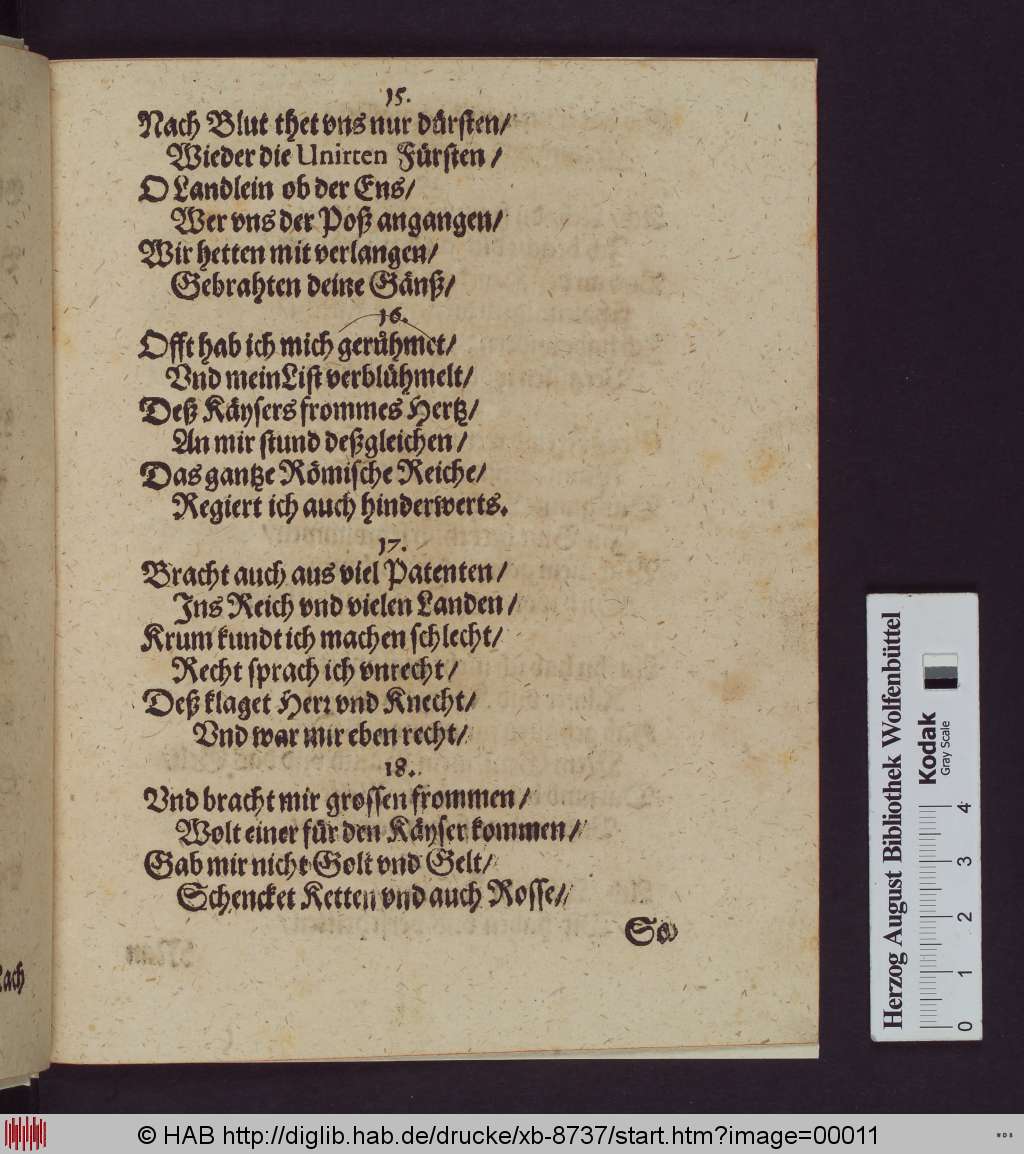 15.
Nach Blut thet vns nur dürsten/
Wieder die Unirten Fürsten /
O Landlein ob der Ens/
Wer vns der Poß angangen/
Wir hetten mit verlangen/
Gebrahten deine Gänß/
16.
Offt hab ich mich gerühmet/
Vnd mein List verblühmelt/
Deß Käysers frommes Hertz/
An mir stund deßgleichen /
Das gantze Römische Reiche/
Regiert ich auch hinderwerts.
17.
Bracht auch aus viel Patenten/
Ins Reich vnd vielen Landen /
Krum kundt ich machen schlecht/
Recht sprach ich vnrecht /
Deß klaget Herr vnd Knecht/
Vnd war mir eben recht/
18.
Vnd bracht mir grossen frommen /
Wolt einer für den Käyser kommen /
Gab mir nicht Golt vnd Gelt/
Schencket Ketten vnd auch Rosse/
So
Herzog August Bibliothek Wolfenbüttel
Kodak
Gray Scale
0 1 2 3 4
© HAB http://diglib.hab.de/drucke/xb-8737/start.htm?image=00011